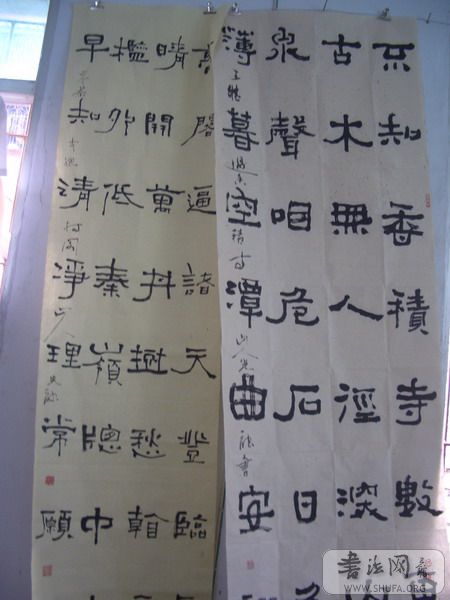 不知香積寺數
古木無人徑深
泉聲咽危石日
薄暮空潭曲安
王維過香積寺
高閣逼諸天登臨
晴開萬井樹愁看
檻外低秦嶺牕中
早知清淨理常願
書法网
WWW.SHUFA.ORG